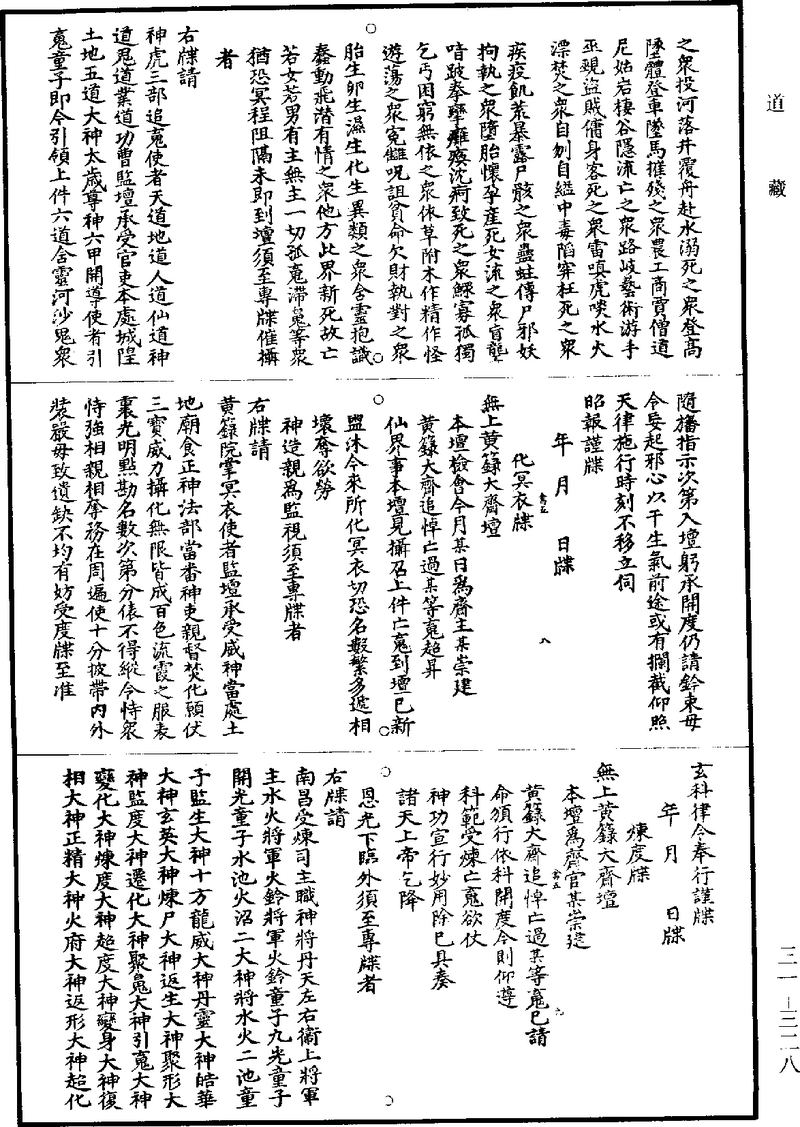 道藏
之衆投河落井覆舟赴水溺死之衆登高
墜體登車墜馬摧殘之衆農工商賈僧道
尼姑岩棲谷隱流亡之衆路岐藝術游手
巫覡盜賊傭身客死之衆雷嗔虎啖水火
漂焚之衆自刎自縊中毒陷穽枉死之衆
疾疫飢荒暴露尸骸之衆蠱蛀傳尸邪妖
拘執之衆墮胎懷孕產死女流之衆盲聾
喑跛拳攣癱瘓沈痾致死之衆鰥寡孤獨
乞丐困窮無依之衆依草附木作精作怪
遊蕩之衆冤讎呪詛負命欠財執對之衆
胎生卵生濕生化生異類之衆含靈抱識
蠢動飛潛有情之衆他方此界新死故亡
若女若男有主無主一切孤䰟滯䰟等衆
猶恐冥程阻隔未即到壇須至專牒催攝
者
右牒請
神虎三部追䰟使者天道地道人道仙道神
道鬼道業道功曹監壇承受官吏本處城隍
土地五道大神太歲尊神六甲開導使者引
䰟童子即今引領上件六道含靈河沙鬼衆
隨旛指示次第入壇躬承開度仍請鈐束毋
令妄起邪心以干生氣前途或有攔截仰照
天律施行時刻不移立伺
昭報謹牒
年 月 日牒
化冥衣牒
無上黃籙大齋壇
本壇檢會今月某日爲齋主某崇建
黃籙大齋追悼亡過某等䰟超昇
仙界事本壇見攝召上件亡䰟到壇已新
盥沐今來所化冥衣切恐名數繁多遞相
壞奪欲勞
神造親爲監視須至專牒者
右牒請
黃籙院掌冥衣使者監壇承受威神當處土
地廟食正神法部當番神吏親督焚化願伏
三寶威力攝化無限皆成百色流霞之服表
裏光明點勘名數次第分俵不得縱令恃衆
恃強相親相奪務在周遍使十分披帶內外
裝嚴毋致遺缺不均有妨受度牒至准
玄科律令奉行謹牒
年 月 日牒
煉度牒
無上黃籙大齋壇
本壇爲齋官某崇建
黃籙大齋追悼亡過某等䰟已請
命頒行依科開度今則仰遵
科範受煉亡䰟欲仗
神功宣行妙用除已具奏
諸天上帝乞降
恩光下臨外須至專牒者
右牒請
南昌受煉司主職神將丹天左右衞上將軍
主水火將軍火鈴將軍火鈴童子九光童子
開光童子水池火沼二大神將水火二池童
子監生大神十方龍威大神丹靈大神皓華
大神玄英大神煉尸大神返生大神聚形大
神監度大神遷化大神聚䰟大神引䰟大神
變化大神煉度大神超度大神變身大神復
相大神正精大神火府大神返形大神超化
三一—三二八